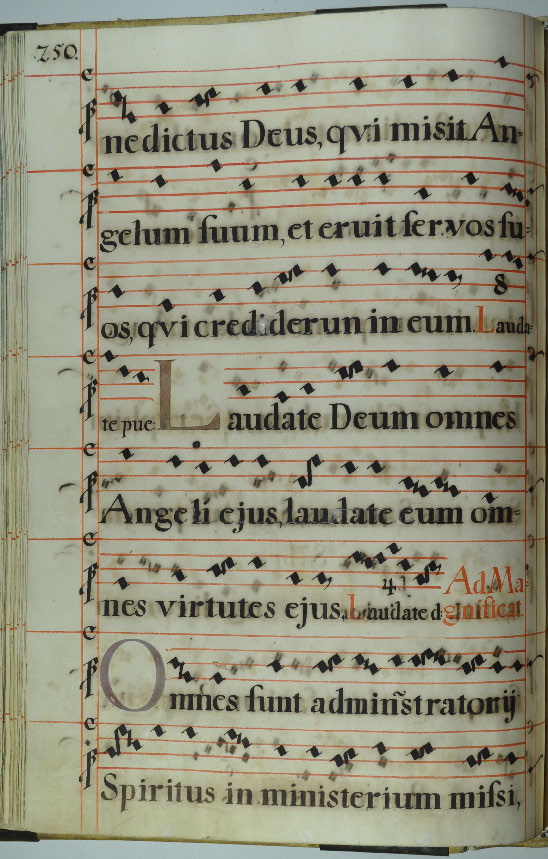 250.
nedictus Deus, qvi misit An-
gelum ſuum, et eruit ſervos ſu-
os, qvi crediderun in eum. Lauda-
te pue. Laudate Deum omnes
Angeli ejus, laudate eum om-
nes virtutes ejus. Laudate d Ad Ma-
gnificat
Omnes ſunt adminiſtratorij
Spiritus in ministerium miſsi,